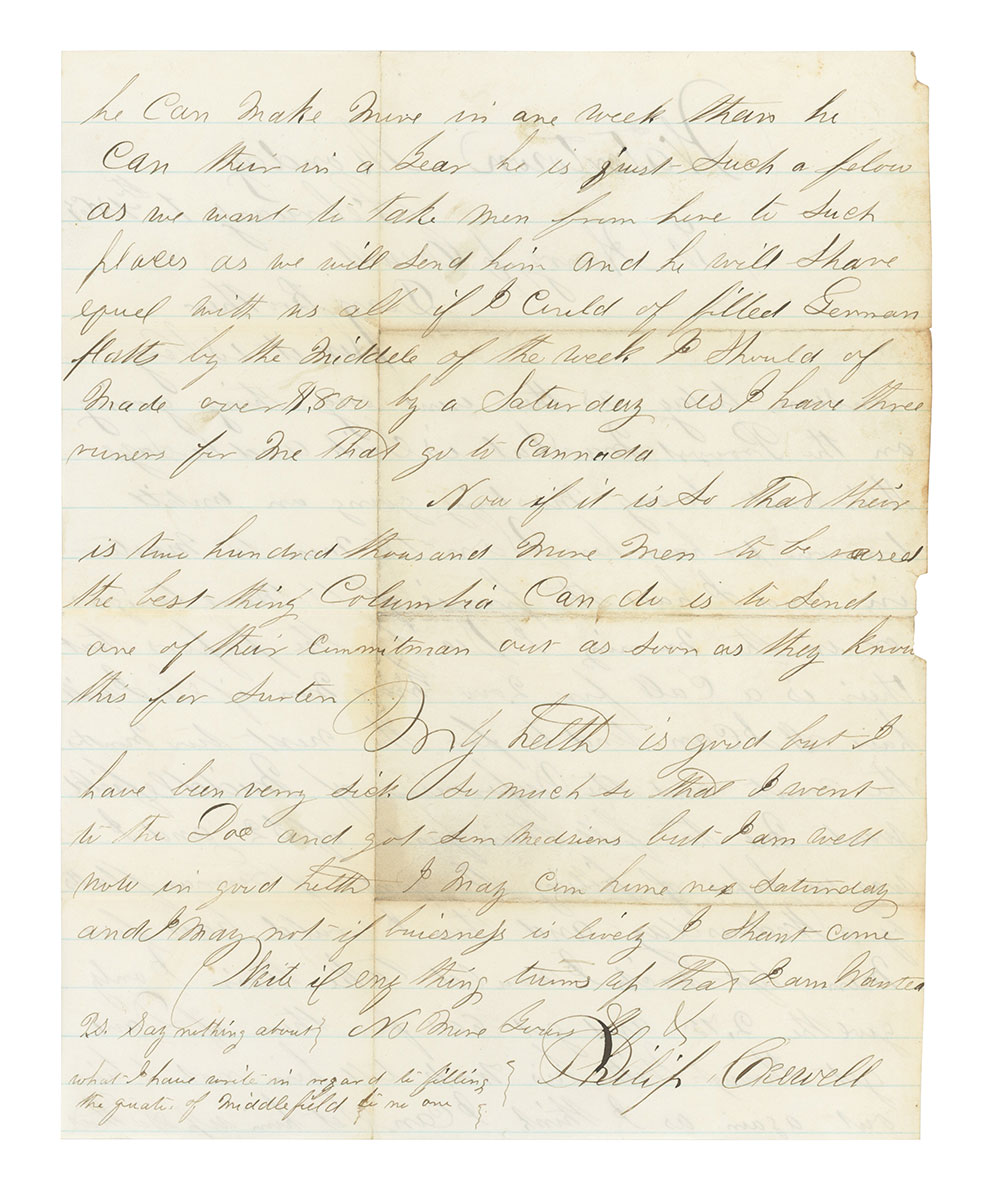 he Can Make More in one week than he
Can their in a Year he is just Such a felow
as we want to take men from here to Such
places as we will Send him and he will Share
equel with us all if I Could of filled German
flatts by the Middele of the week I Should of
Made over $1,800 by a Saturday as I have three
runers for Me that go to Cannada
Now if it is So that their
is two hundred thousand More Men to be rased
the best thing Columbia Can do is to Send
one of their Commitman out as soon as they know
this for Surten
My helth is good but I
have been verry sick so much so that I went
to the Doc and got som medsiens but I am well
now in good helth I May Com home nex Saturday
and I May not if buisness is lively I Shant come
Write if eny thing turns up that I am Wanted
No More Yours &c &
Philip Crewell
P.S. Say nothing about
what I have write in regard to filling
the quato of Middlefield to no one